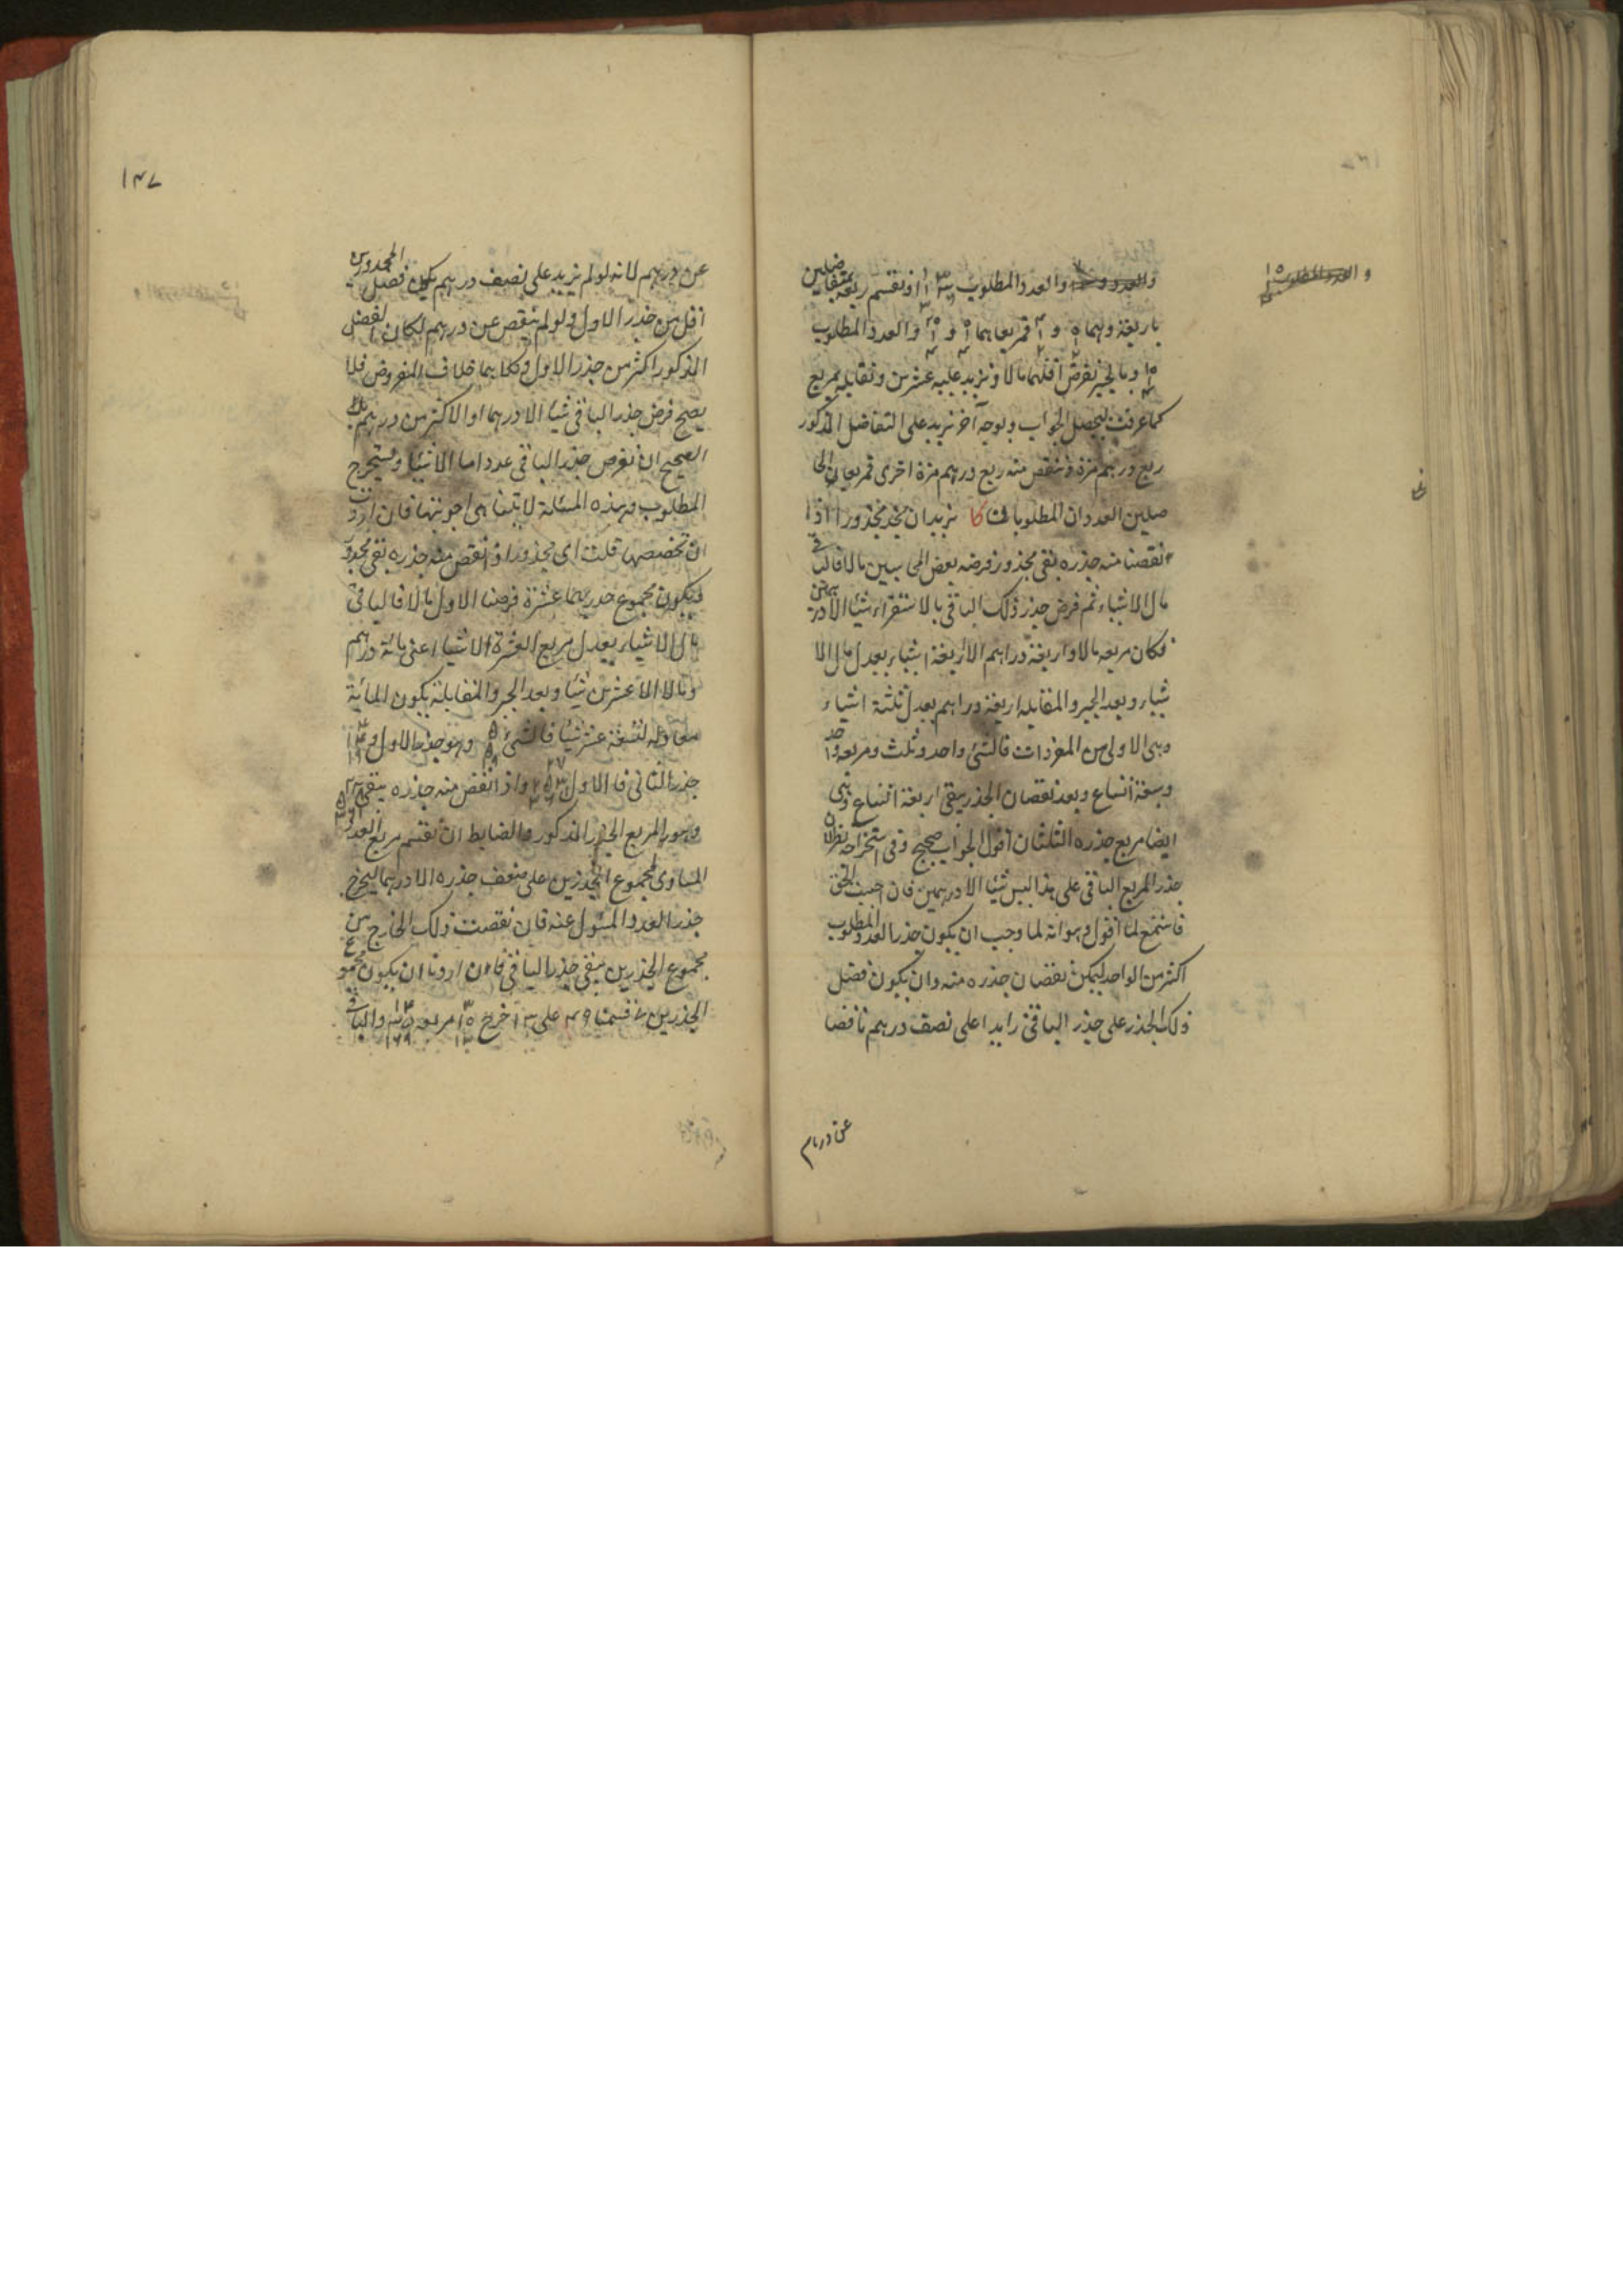 والعدد المطلوب او نقسم ربعه بمتفاضلين
باربعة وهما و فمربعاهما و والعدد المطلوب
وبالجبر نفرض اقلهما مالا ونزيد عليه عشرين ونقابله بمربع
كما عرفت ليحصل الجواب وبوجه آخر نزيد على التفاضل المذكور
ربع درهم مرة وننقص منه ربع درهم مرة اخرى فمربعا الحا
صلين العددان المطلوبان كا نريد ان نجد مجذورا اذا
نقصنا منه جذره بقى مجذور فرضه بعض المحاسبين مالا فالباقي
مال الا شيئا ثم فرض جذر ذلك الباقي بالاستقراء شيئا الا درهمين
فكان مربعه مالا واربعة دراهم الا اربعة اشياء يعدل مال الا
شيئا وبعد الجبر والمقابلة اربعة دراهم يعدل ثلثة اشياء
وهى الاولى من المفردات فالشئ واحد وثلث ومربعه واحد
وسبعة اتساع وبعد نقصان الجذر يبقى اربعة اتساع وهى
ايضا مربع جذره الثلثان اقول الجواب صحيح وفى استخراجه نظر لان
جذر المربع الباقى على هذا ليس شيئا الا درهمين فان احببت الحق
فاستمع لما اقول وهو انه لما وجب ان يكون جذر العدد المطلوب
اكثر من الواحد ليمكن نقصان جذره منه وان يكون فضل
ذلك الجذر على جذر الباقى زايدا على نصف درهم ناقصا
عن درهم
١٣٧
عن درهم لانه لو لم يزيد على نصف درهم يكون فضل المجذورين
اقل من جذر الاول ولو لم ينقص عن درهم لكان الفضل
المذكور اكثر من جذر الاول وكلاهما خلاف المفروض فلا
يصح فرض جذر الباقى شيئا الا درهما او الا اكثر من درهم بل
الصحيح ان نفرض جذر الباقى عددا ما الا شيئا ونستخرج
المطلوب وهذه المسئلة لا يتناهى اجوبتها فان اردت
ان تخصيصها قلت اى مجذور اذا نقص منه جذره بقى مجذور
ويكون مجموع جذريهما عشرة فرضنا الاول مالا فالباقى
مال الا شيئا يعدل مربع العشرة الا شيئا اعنى مائة درهم
ومالا الا عشرين شيئا وبعد الجبر والمقابلة يكون المائة
معادلة لتسعة عشر شيئا فالشئ وهو جذر الاول و
جذر الثانى فالاول واذا نقص منه جذره يبقى
وهو المربع الجذر المذكور والضابط ان نقسم مربع العدد
المساوى لمجموع الجذرين على ضعف جذره الا درهما ليخرج
جذر العدد المسئول عنه فان نقصت ذلك الخارج من
مجموع الجذرين يبقى جذر الباقى فان اردنا ان يكون مجموع
الجذرين ٧ قسمنا ٤٩ على ١٣ خرج مربعه والباقى